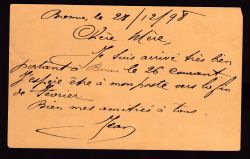 Berne, le 28/12/98
Chère Mère,
Je suis arrivé très bien
portant à Berne le 26 courant
J'espère être à mon poste vers la fin
de Février
Bien mes amitiés à tous.
Jean